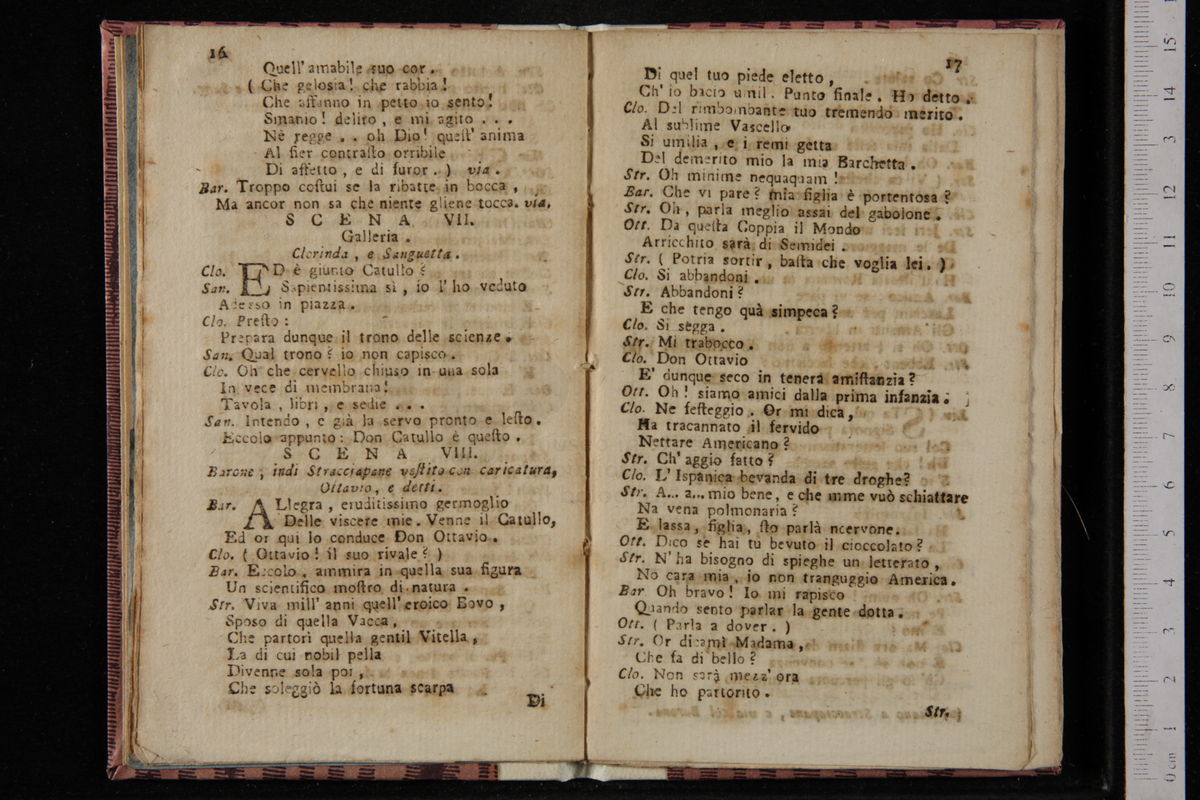 16
Quell' amabile suo cor.
( Che gelosia! che rabbia!
Che affanno in petto io sento!
Smanio! deliro, e mi agito . . .
Nè regge . . oh Dio! quest' anima
Al fier contrasto orribile
Di affetto, e di furor. ) via.
Bar. Troppo costui se la ribatte in bocca,
Ma ancor non sa che niente gliene tocca. via.
SCENA VII.
Galleria.
Clorinda, e Sanguetta.
Clo. ED è giunto Catullo?
San. Sapientissima sì, io l' ho veduto
Adesso in piazza.
Clo. Presto:
Prepara dunque il trono delle scienze.
San. Qual trono? io non capisco.
Clo. Oh che cervello chiuso in una sola
In vece di membrana!
Tavola, libri, e sedie . . .
San. Intendo, e già la servo pronto e lesto.
Eccolo appunto: Don Catullo è questo.
SCENA VIII.
Barone, indi Stracciapane vestito con caricatura,
Ottavio, e detti.
Bar. ALlegra, eruditissimo germoglio
Delle viscere mie. Venne il Catullo,
Ed or qui lo conduce Don Ottavio.
Clo. ( Ottavio! il suo rivale? )
Bar. Eccolo, ammira in quella sua figura
Un scientifico mostro di natura.
Str. Viva mill' anni quell' eroico Bovo,
Sposo di quella Vacca,
Che partorì quella gentil Vitella,
La di cui nobil pella
Divenne sola poi,
Che soleggiò la fortuna scarpa
Di
17
Di quel tuo piede eletto,
Ch' io bacio umil. Punto finale. Ho detto.
Clo. Del rimbombante tuo tremendo merito.
Al sublime Vascello
Si umilia, e i remi getta
Del demerito mio la mia Barchetta.
Str. Oh minime nequaquam!
Bar. Che vi pare? mia figlia è portentosa?
Str. Oh, parla meglio assai del gabolone.
Ott. Da questa Coppia il Mondo
Arricchito sarà di Semidei.
Str. ( Potria sortir, basta che voglia lei. )
Clo. Si abbandoni.
Str. Abbandoni?
E che tengo quà simpeca?
Clo. Si segga.
Str. Mi trabocco.
Clo. Don Ottavio
E' dunque seco in tenera amistanzia?
Ott. Oh! siamo amici dalla prima infanzia.
Clo. Ne festeggio. Or mi dica,
Ha tracannato il fervido
Nettare Americano?
Str. Ch' aggio fatto?
Clo. L' Ispanica bevanda di tre droghe?
Str. A... a... mio bene, e che mme vuò schiattare
Na vena polmonaria?
E lassa, figlia, sto parlà ncervone.
Ott. Dico se hai tu bevuto il cioccolato?
Str. N' ha bisogno di spieghe un letterato,
Nò cara mia, io non tranguggio America.
Bar Oh bravo! Io mi rapisco
Quando sento parlar la gente dotta.
Ott. ( Parla a dover. )
Str. Or dicami Madama,
Che fa di bello?
Clo. Non sarà mezz' ora
Che ho partorito.
Str.